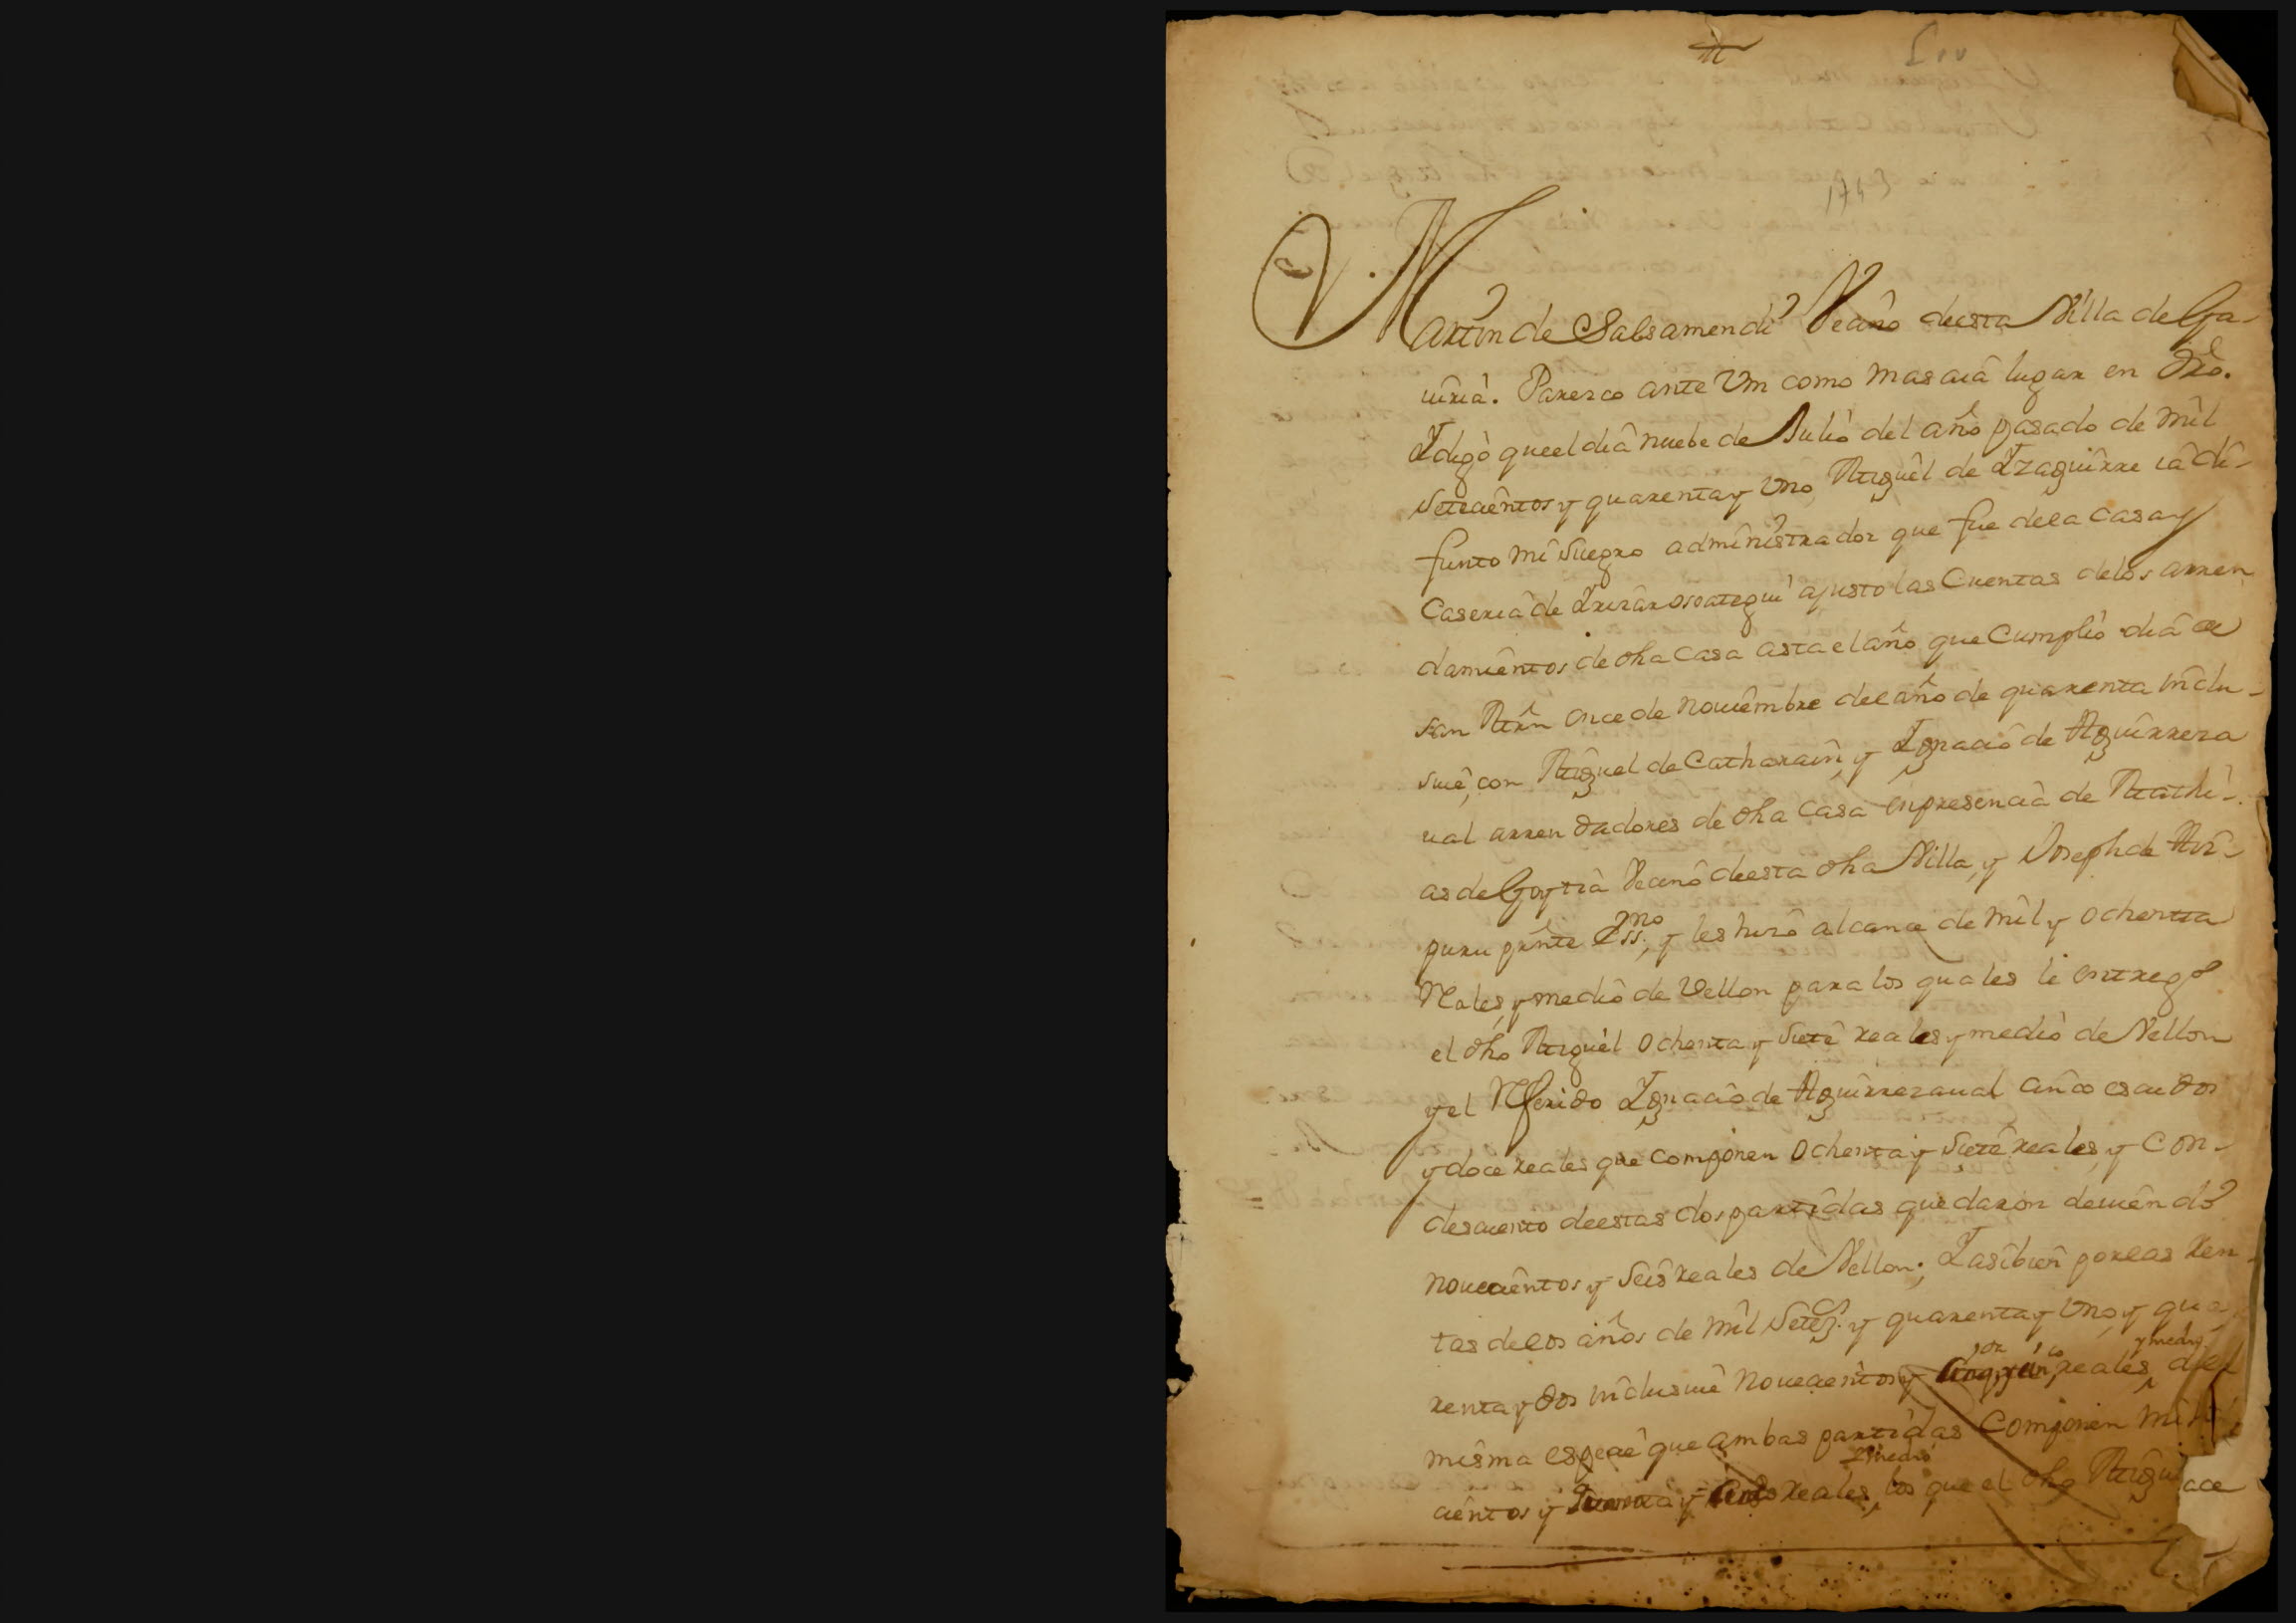 1743
Martin de Salsamendi Vecino deesta Villa de Ga-
uiria. Paresco ante Vm como mas aia lugar en Dro.
Y digo queel dia nuebe de Julio del año pasado de mil
Setecientos y quarenta y Uno, Miguel de Yzaguirre ia di-
funto mi Suegro administrador que fue dela Casa y
Caseria de ajusto las Cuentas delos arren
damientos de dha Casa asta el año que Cumplio dia de
san Mrn once de Nouiembre del año de quarenta inclu-
siue, con Miguel de Catharain, y Ygnacio de Aguirreza
ual arrendadores de dha Casa enpresencia de Mathi-
as de Goytia Vecino deesta dha Villa, y Joseph de Azi-
puru prnte Essno, y les hizo alcance de mil y ochenta
Reales, y medio de Vellon para los quales le entrego
el dho Miguel Ochenta y Siete reales y medio de Vellon
y el Referido Ygnacio de Aguirrezaual cinco escudos
y doce reales que componen Ochenta y Siete reales, y Con-
descuento deestas dos partidas quedaron deuiendo
nouecientos y Seis reales de Vellon; Y asibien porlas Ren
tas delos años de mil Setez. y quarenta y Uno, y qua
renta y dos inclusiue Nouecientos y reales y medio, de
misma especie que ambas partidas Componen mil
cientos y reales y medio, los que el dho Migu